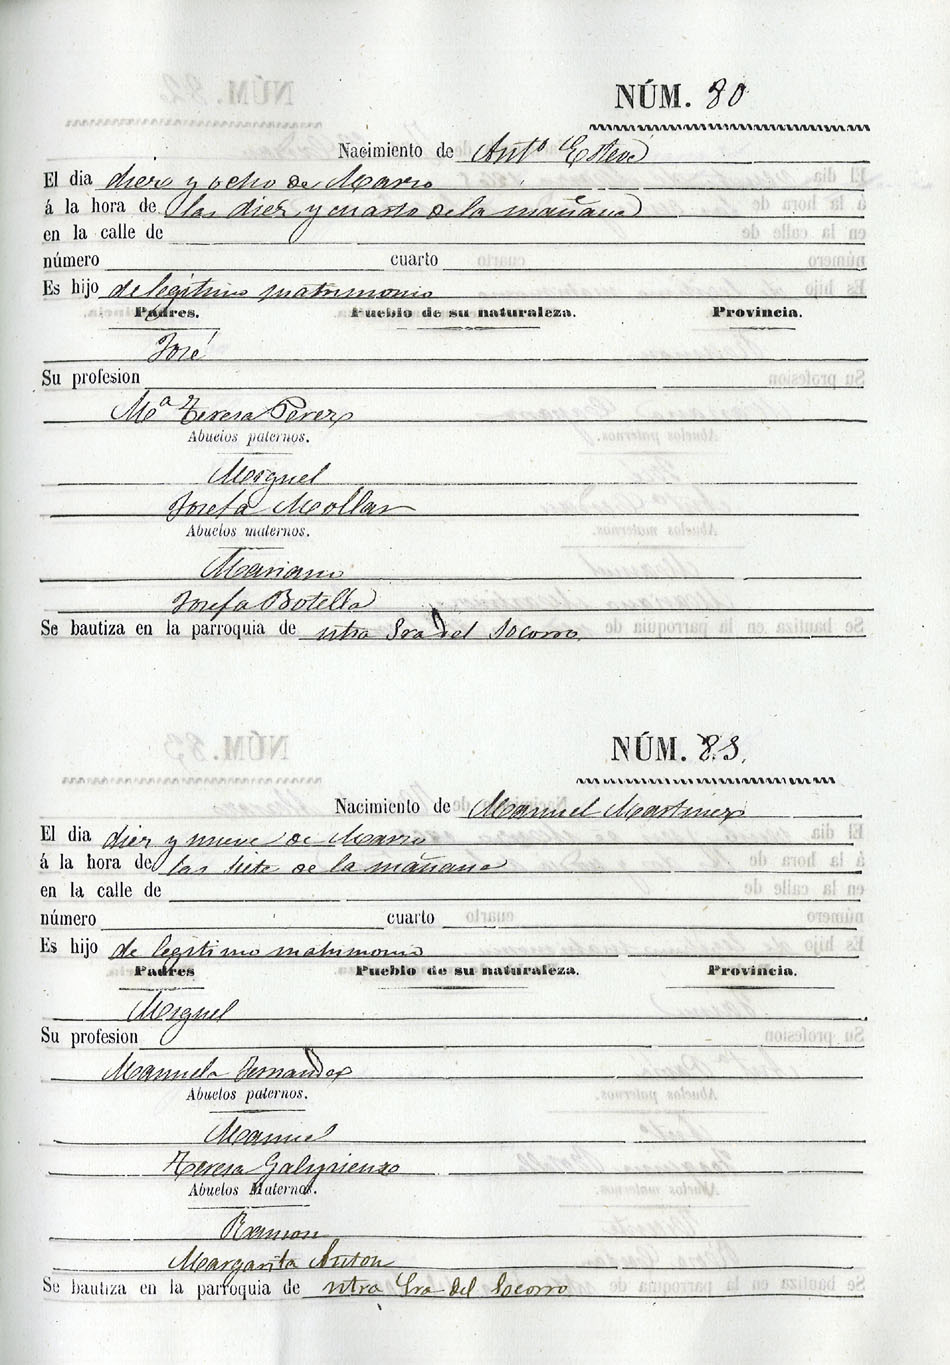 NÚM. 80
Nacimiento de Antº Esteve
El dia diez y ocho de Marzo
á la hora de las diez y cuarto de la mañana
en la calle de
número cuarto
Es hijo de legitimo matrimonio
Padres. Pueblo de su naturaleza. Provincia.
José
Su profesion
Mª Teresa Perez
Abuelos paternos.
Miguel
Josefa Mollar
Abuelos maternos.
Mariano
Josefa Botella
Se bautiza en la parroquia de ntra Sra del Socorro
NÚM.
Nacimiento de Manuel Martinez
El dia diez y nueve de Marzo
á la hora de las siete de la mañana
en la calle de
número cuarto
Es hijo de legitimo matrimonio
Padres Pueblo de su naturaleza. Provincia.
Miguel
Su profesion
Manuela Fernandez
Abuelos paternos.
Manuel
Teresa Galyrienzo
Abuelos Maternos.
Ramon
Margarita Anton
Se bautiza en la parroquia de ntra Sra del Socorro